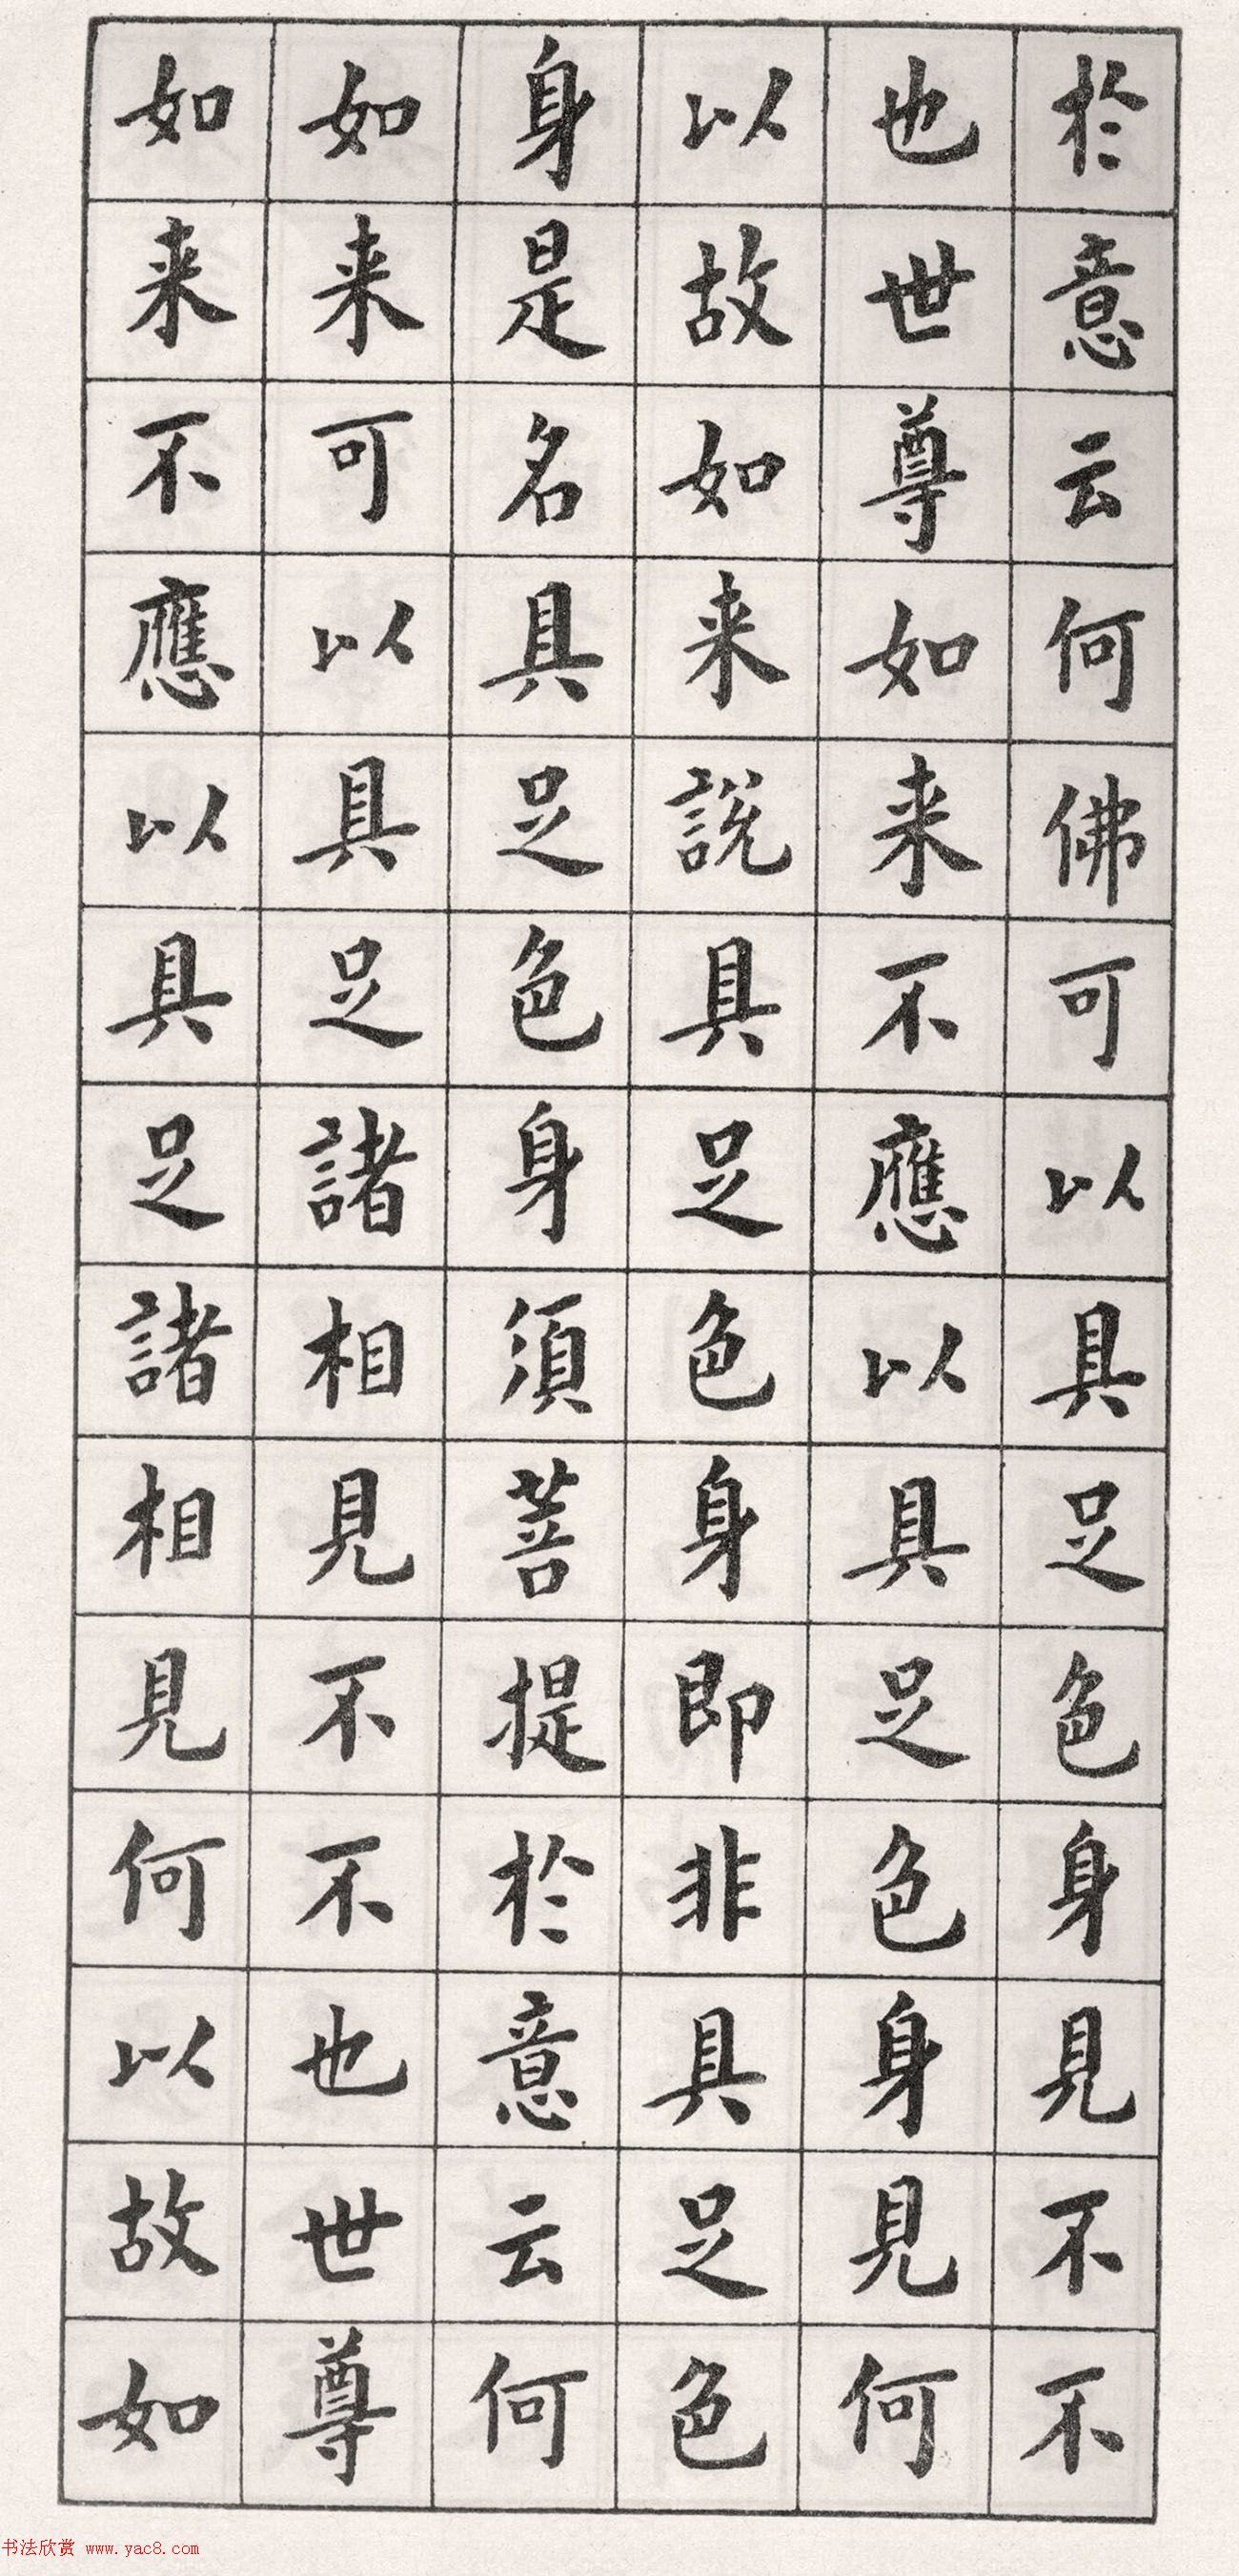 於意云何佛可以具足色身見不不
也世尊如来不應以具足色身見何
以故如来說具足色身即非具足色
身是名具足色身須菩提於意云何
如来可以具足諸相見不不也世尊
如来不應以具足諸相見何以故如
书法欣赏 www.yac8.com